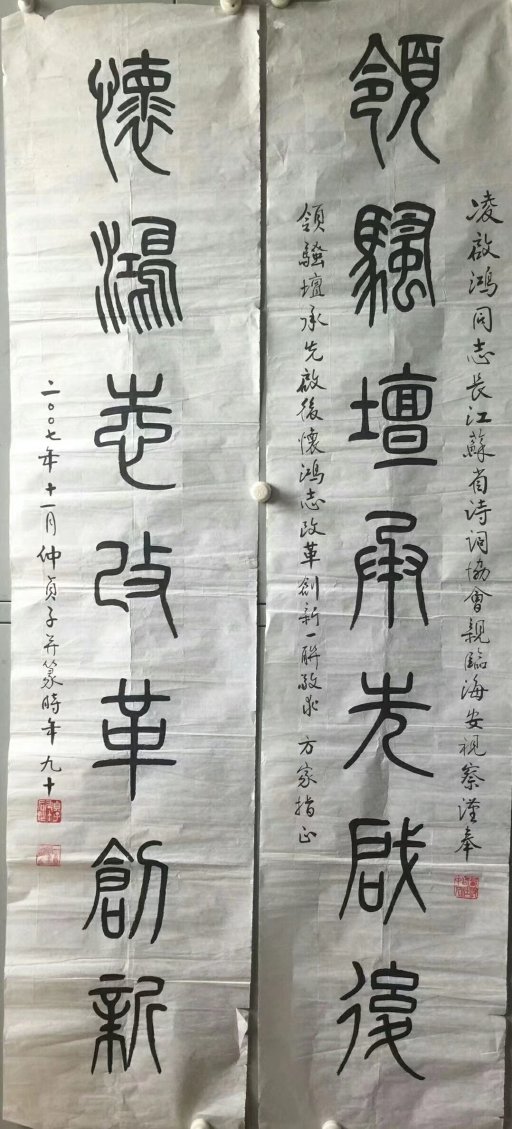 凌啟鴻同志長江蘇省诗词協會親臨海安視察谨奉
領騷壇承先啟後
領騷壇承先啟後懷鴻志改革創新一聯敬求 方家指正
懷鴻志改革創新
二〇〇七年十一月仲貞子并篆時年九十